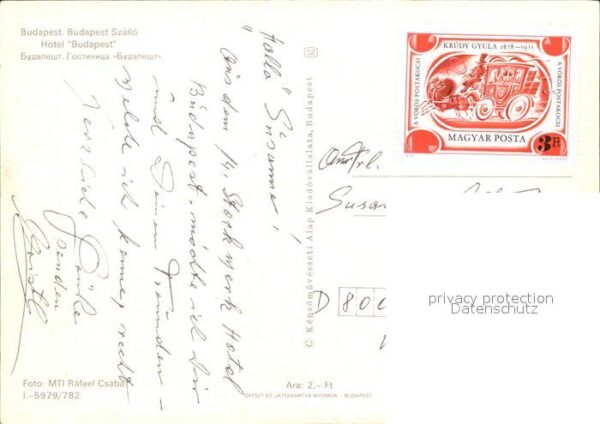 Budapest. Budapest Szálló
Hotel "Budapest"
Будапешт. Гостиница «Будапешт»
Hallo Susanne!
Aus dem 14. Stockwerk Hotel
Budapest, möchte ich Dir
und Deinen Freunden -
ich kenne, recht
herzliche Grüße
senden
Foto: MTI Ráfael Csaba
I.-5979/782.
Ara: 2,- Ft
OFFSET ÉS JÁTÉKKÁRTYA NYOMDA - BUDAPEST
© Képzőművészeti Alap Kiadóvállalata, Budapest
KRÚDY GYULA 1878-1933
A VÖRÖS POSTAKOCSI
A VÖRÖS POSTAKOCSI
MAGYAR POSTA
3 Ft
Frl.
Susan
D 800
privacy protection
Datenschutz